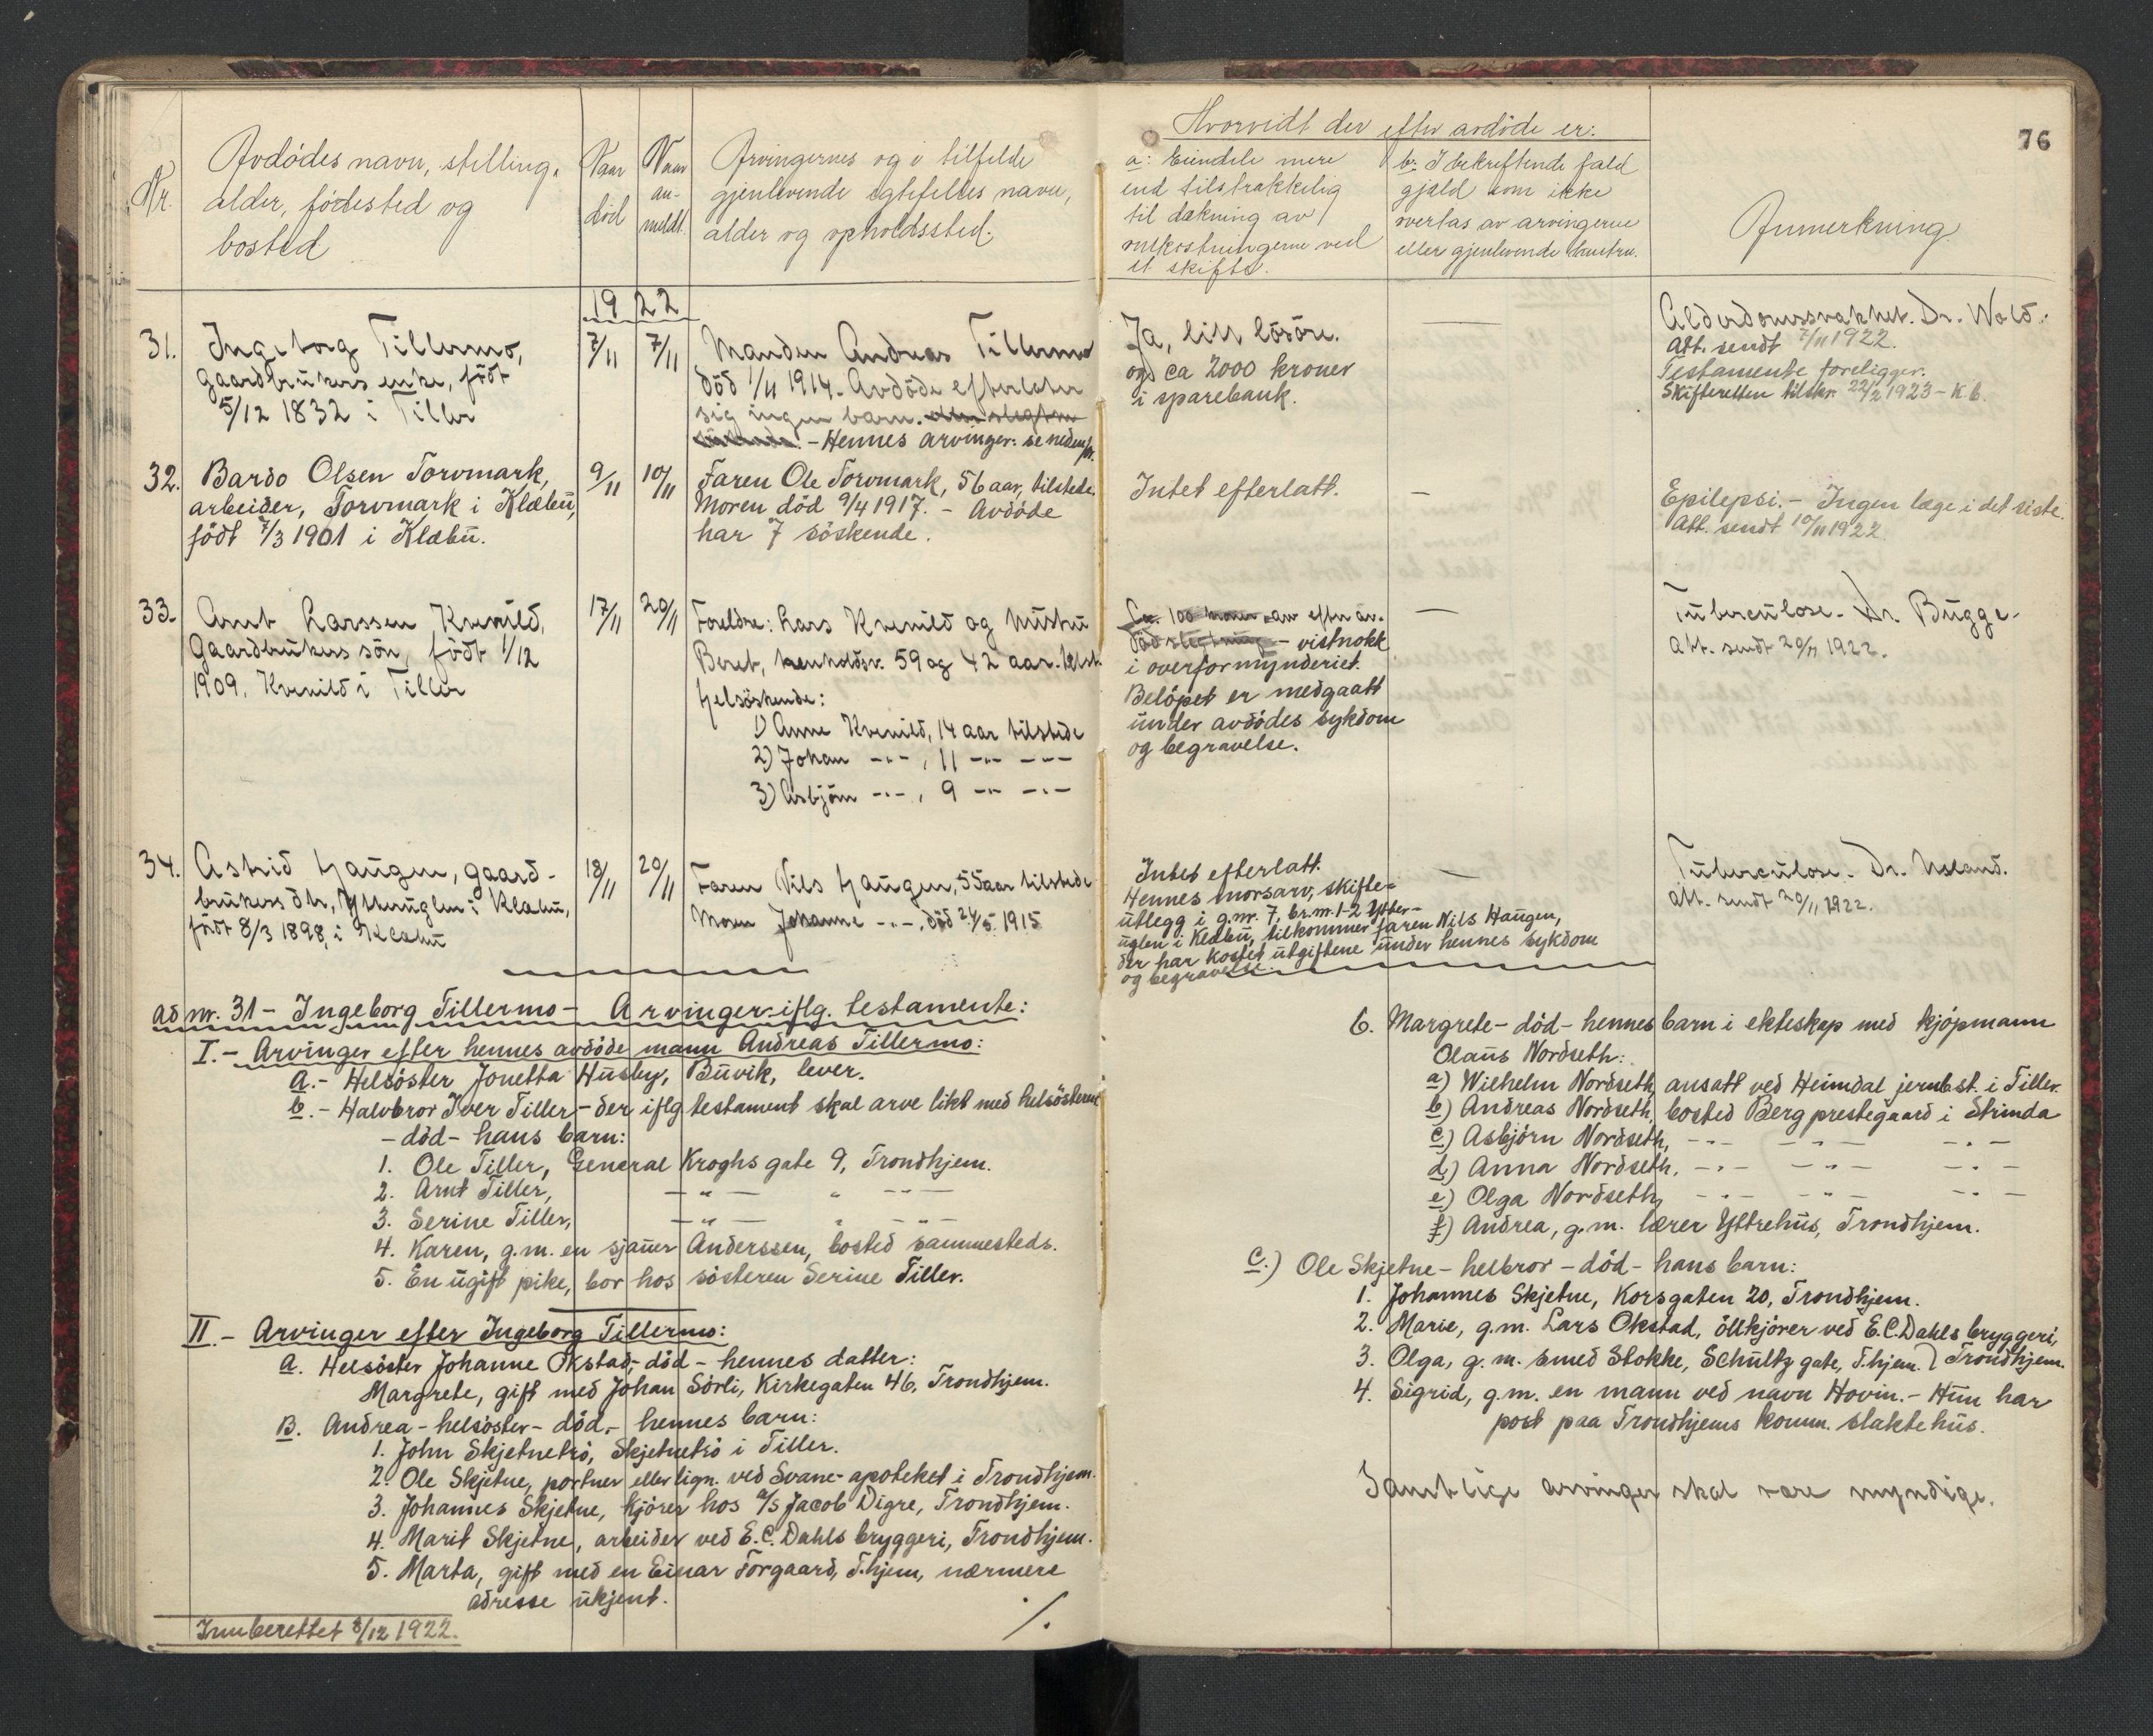 76
Nr.
Avdødes navn, stilling,
alder, fødested og
bosted
Naar
död
Naar
an-
meldt.
Arvingernes og i tilfelde
gjenlevende egtefelles navn,
alder og opholdssted.
Hvorvidt der efter avdöde er:
a: Eiendele mere
end tilstrakkelig
til dækning av
omkostningerne ved
et skifte.
b: I bekreftende fald
gjæld som ikke
overtas av arvingerne
eller gjenlevende hustru.
Anmerkning
1922
31.
Ingeborg Tillermo,
gaardbrukers enke, född
5/12 1832 i Tiller
7/11
7/11
Manden Andreas Tillermo
död 1/11 1914. Avdöde efterlater
sig ingen barn.
- Hennes arvinger: se nedenfor.
Ja, litt lösöre.
og ca 2000 kroner
i sparebank.
Alderdomssvakhet. Dr. Wold.
Att. sendt 7/11 1922.
Testamente foreligger.
Skifteretten tilskr. 22/2 1923 - K.b.
32.
Bardo Olsen Torvmark,
arbeider, Torvmark i Klæbu,
födt 7/3 1901 i Klæbu.
9/11
10/11
Faren Ole Torvmark, 56 aar, tilstede.
Moren död 9/4 1917. - Avdöde
har 7 söskende.
Intet efterlatt.
—
Epilepsi. - Ingen læge i det siste.
Att. sendt 10/11 1922.
33.
Arnt Larssen Kvenild,
Gaardbrukers sön, födt 1/12
1909. Kvenild i Tiller
17/11
20/11
Foreldre: Lars Kvenild og hustru
Beret, henholdsv. 59 og 42 aar. tilst.
Helsöskende:
1) Anne Kvenild, 14 aar tilstede
2) Johan -"-, 11 -"- -"-
3) Asbjörn -"-, 9 -"- -"-
Ca. 100 kroner arv efter av-
död slegtning - vistnokk
i overformynderiet.
Belöpet er medgaatt
under avdödes sykdom
og begravelse.
—
Tuberculose. Dr. Bugge.
Att. sendt 20/11 1922.
34.
Astrid Haugen, gaard-
brukers dtr, Ytteruglen i Klæbu,
född 8/3 1898 i Klæbu
18/11
20/11
Faren Nils Haugen, 55 aar tilstede
Moren Johanne -"-, död 24/5 1915
Intet efterlatt.
Hennes morsarv, skifte-
utlegg i g.nr. 7, br.nr. 1-2 Ytter-
uglen i Klæbu, tilkommer faren Nils Haugen,
der har kostet utgiftene under hennes sykdom
og begravelse.
—
Tuberculose. Dr.
Att. sendt 20/11 1922.
ad nr. 31 - Ingeborg Tillermo - Arvinger iflg. testamente:
I. - Arvinger efter hennes avdöde mann Andreas Tillermo:
a. - Helsöster Jonetta Husby, Buvik, lever.
b. - Halvbror Iver Tiller - der iflg testament skal arve likt med helsösteren
- död - hans barn:
1. Ole Tiller, General Kroghs gate 9, Trondhjem.
2. Arnt Tiller, -"- " -"-
3. Serine Tiller, -"- " -"-
4. Karen, g.m. en sjauer Anderssen, bosted sammesteds.
5. En ugift pike, bor hos sösteren Serine Tiller.
II. - Arvinger efter Ingeborg Tillermo:
a. Helsöster Johanne Okstad, död - hennes datter:
Margrete, gift med Johan Sörli, Kirkegaten 46, Trondhjem.
B. Andrea - helsöster - död, - hennes barn:
1. John Skjetnetrö, Skjetnetrö i Tiller.
2. Ole Skjetne, portner eller lign. ved Svane-apoteket i Trondhjem.
3. Johannes Skjetne, kjörer hos a/s Jacob Digre, Trondhjem.
4. Marit Skjetne, arbeider ved E.C. Dahls bryggeri, Trondhjem.
5. Marta, gift med en Einar Forgaard, T.hjem, nærmere
adresse ukjent.
Innberettet 8/12 1922.
./.
6. Margrete - död - hennes barn i ekteskap med kjöpmann
Olaus Nordseth:
a) Wilhelm Nordseth, ansatt ved Heimdal jernbst. i Tiller.
b) Andreas Nordseth, bosted Berg prestegaard i Strinda
c) Asbjörn Nordseth, -"- -"- -"-
d) Anna Nordseth, -"- -"- -"-
e) Olga Nordseth, -"- -"- -"-
f) Andrea, g.m. lærer Yttrehus, Trondhjem.
C.) Ole Skjetne - helbror - död - hans barn:
1. Johannes Skjetne, Korsgaten 20, Trondhjem.
2. Marie, g.m. Lars Okstad, ölkjörer ved E.C. Dahls bryggeri,
3. Olga, g.m. smed Stokke, Schultz gate, T.hjem. ) Trondhjem.
4. Sigrid, g.m. en mann ved navn Hovin. - Hun har
post paa Trondhjems komm. slaktehus.
Samtlige arvinger skal være myndige.